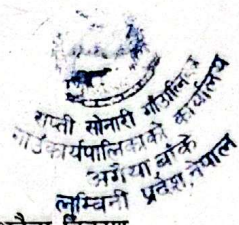 राप्ती सोनारी गाउँपालिका
गाउँकार्यपालिकाको कार्यालय
अगैया बाँके
लुम्बिनी प्रदेश, नेपाल
विवरण